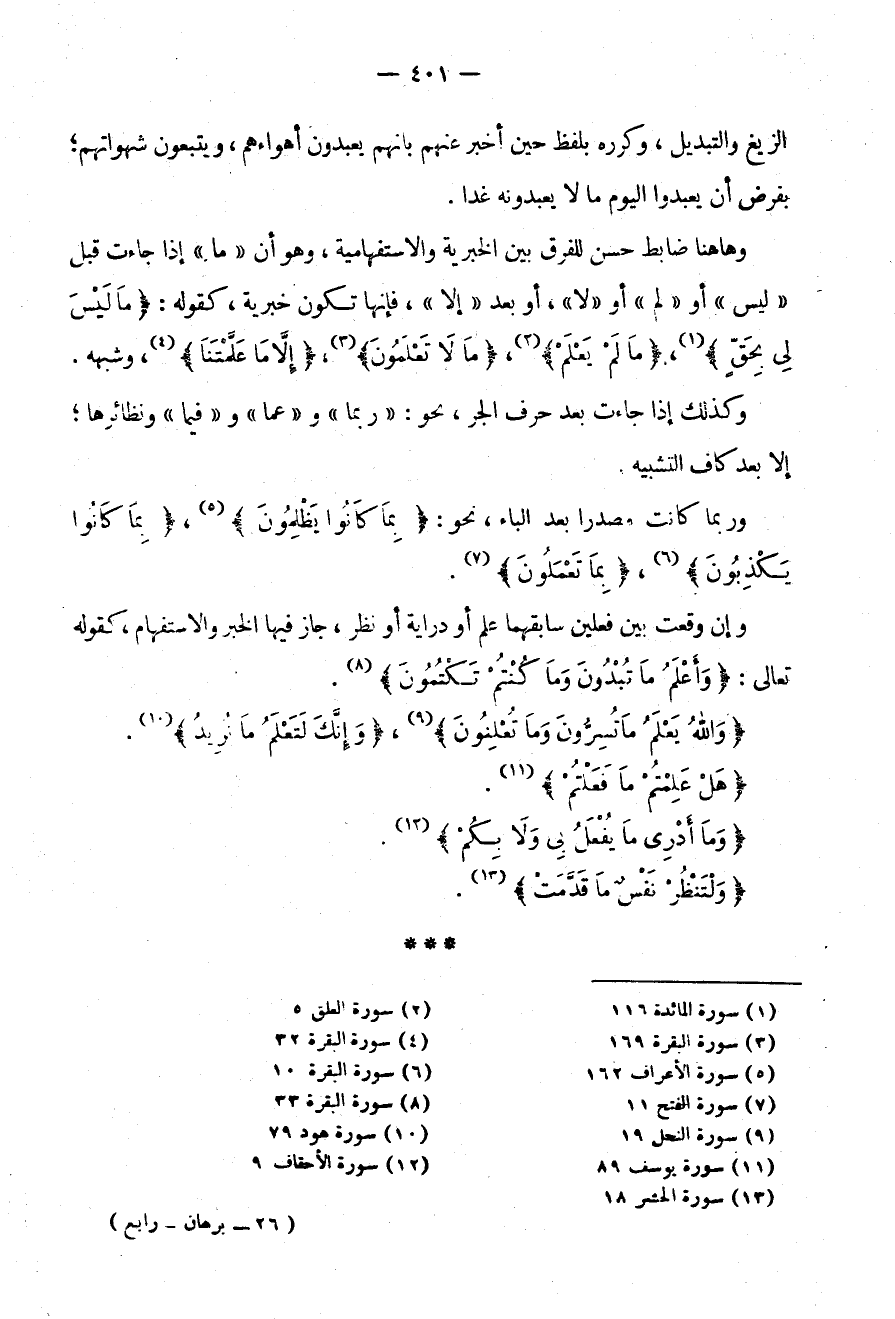 — ٤٠١ —
الزيغ والتبديل ، وكرره بلفظ حين أخبر عنهم بانهم يعبدون أهواءهم ، ويتبعون شهواتهم؛
بفرض أن يعبدوا اليوم ما لا يعبدونه غدا .
وهاهنا ضابط حسن للفرق بين الخبرية والاستفهامية ، وهو أن « ما » إذا جاءت قبل
« ليس » أو « لم » أو «لا» ، أو بعد « إلا » ، فإنها تكون خبرية ، كقوله : ﴿ مَا لَيْسَ
لِي بِحَقٍّ ﴾(١)، ﴿ مَا لَمْ يَعْلَمْ ﴾(٢)، ﴿ مَا لَا تَعْلَمُونَ ﴾(٣)، ﴿ إِلَّا مَا عَلَّمْتَنَا ﴾(٤)، وشبهه .
وكذلك إذا جاءت بعد حرف الجر ، نحو : « ربما » و « عما » و « فيما » ونظائرها ؛
إلا بعد كاف التشبيه .
وربما كانت مصدرا بعد الباء ، نحو : ﴿ بِمَا كَانُوا يَظْلِمُونَ ﴾(٥) ، ﴿ بِمَا كَانُوا
يَكْذِبُونَ ﴾(٦) ، ﴿ بِمَا تَعْمَلُونَ ﴾(٧) .
وإن وقعت بين فعلين سابقهما علم أو دراية أو نظر ، جاز فيها الخبر والاستفهام ، كقوله
تعالى : ﴿ وَأَعْلَمُ مَا تُبْدُونَ وَمَا كُنْتُمْ تَكْتُمُونَ ﴾(٨) .
﴿ وَاللهُ يَعْلَمُ مَا تُسِرُّونَ وَمَا تُعْلِنُونَ ﴾(٩) ، ﴿ وَإِنَّكَ لَتَعْلَمُ مَا نُرِيدُ ﴾(١٠) .
﴿ هَلْ عَلِمْتُمْ مَا فَعَلْتُمْ ﴾(١١) .
﴿ وَمَا أَدْرِى مَا يُفْعَلُ بِى وَلَا بِكُمْ ﴾(١٢) .
﴿ وَلْتَنْظُرْ نَفْسٌ مَا قَدَّمَتْ ﴾(١٣) .
***
(١) سورة المائدة ١١٦
(٢) سورة العلق ٥
(٣) سورة البقرة ١٦٩
(٤) سورة البقرة ٣٢
(٥) سورة الأعراف ١٦٢
(٦) سورة البقرة ١٠
(٧) سورة الفتح ١١
(٨) سورة البقرة ٣٣
(٩) سورة النحل ١٩
(١٠) سورة هود ٧٩
(١١) سورة يوسف ٨٩
(١٢) سورة الأحقاف ٩
(١٣) سورة الحشر ١٨
( ٢٦ — برهان - رابع )